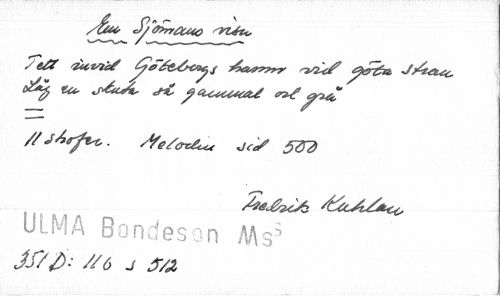 En Sjömans visa
Tett invid Göteborgs hamn vid göta stran
Låg en skuta så gammal och grå
11 strofer. Melodin sid 500
Fredrik Kuhlau
ULMA Bondeson Mss
351 D: 116 s 512